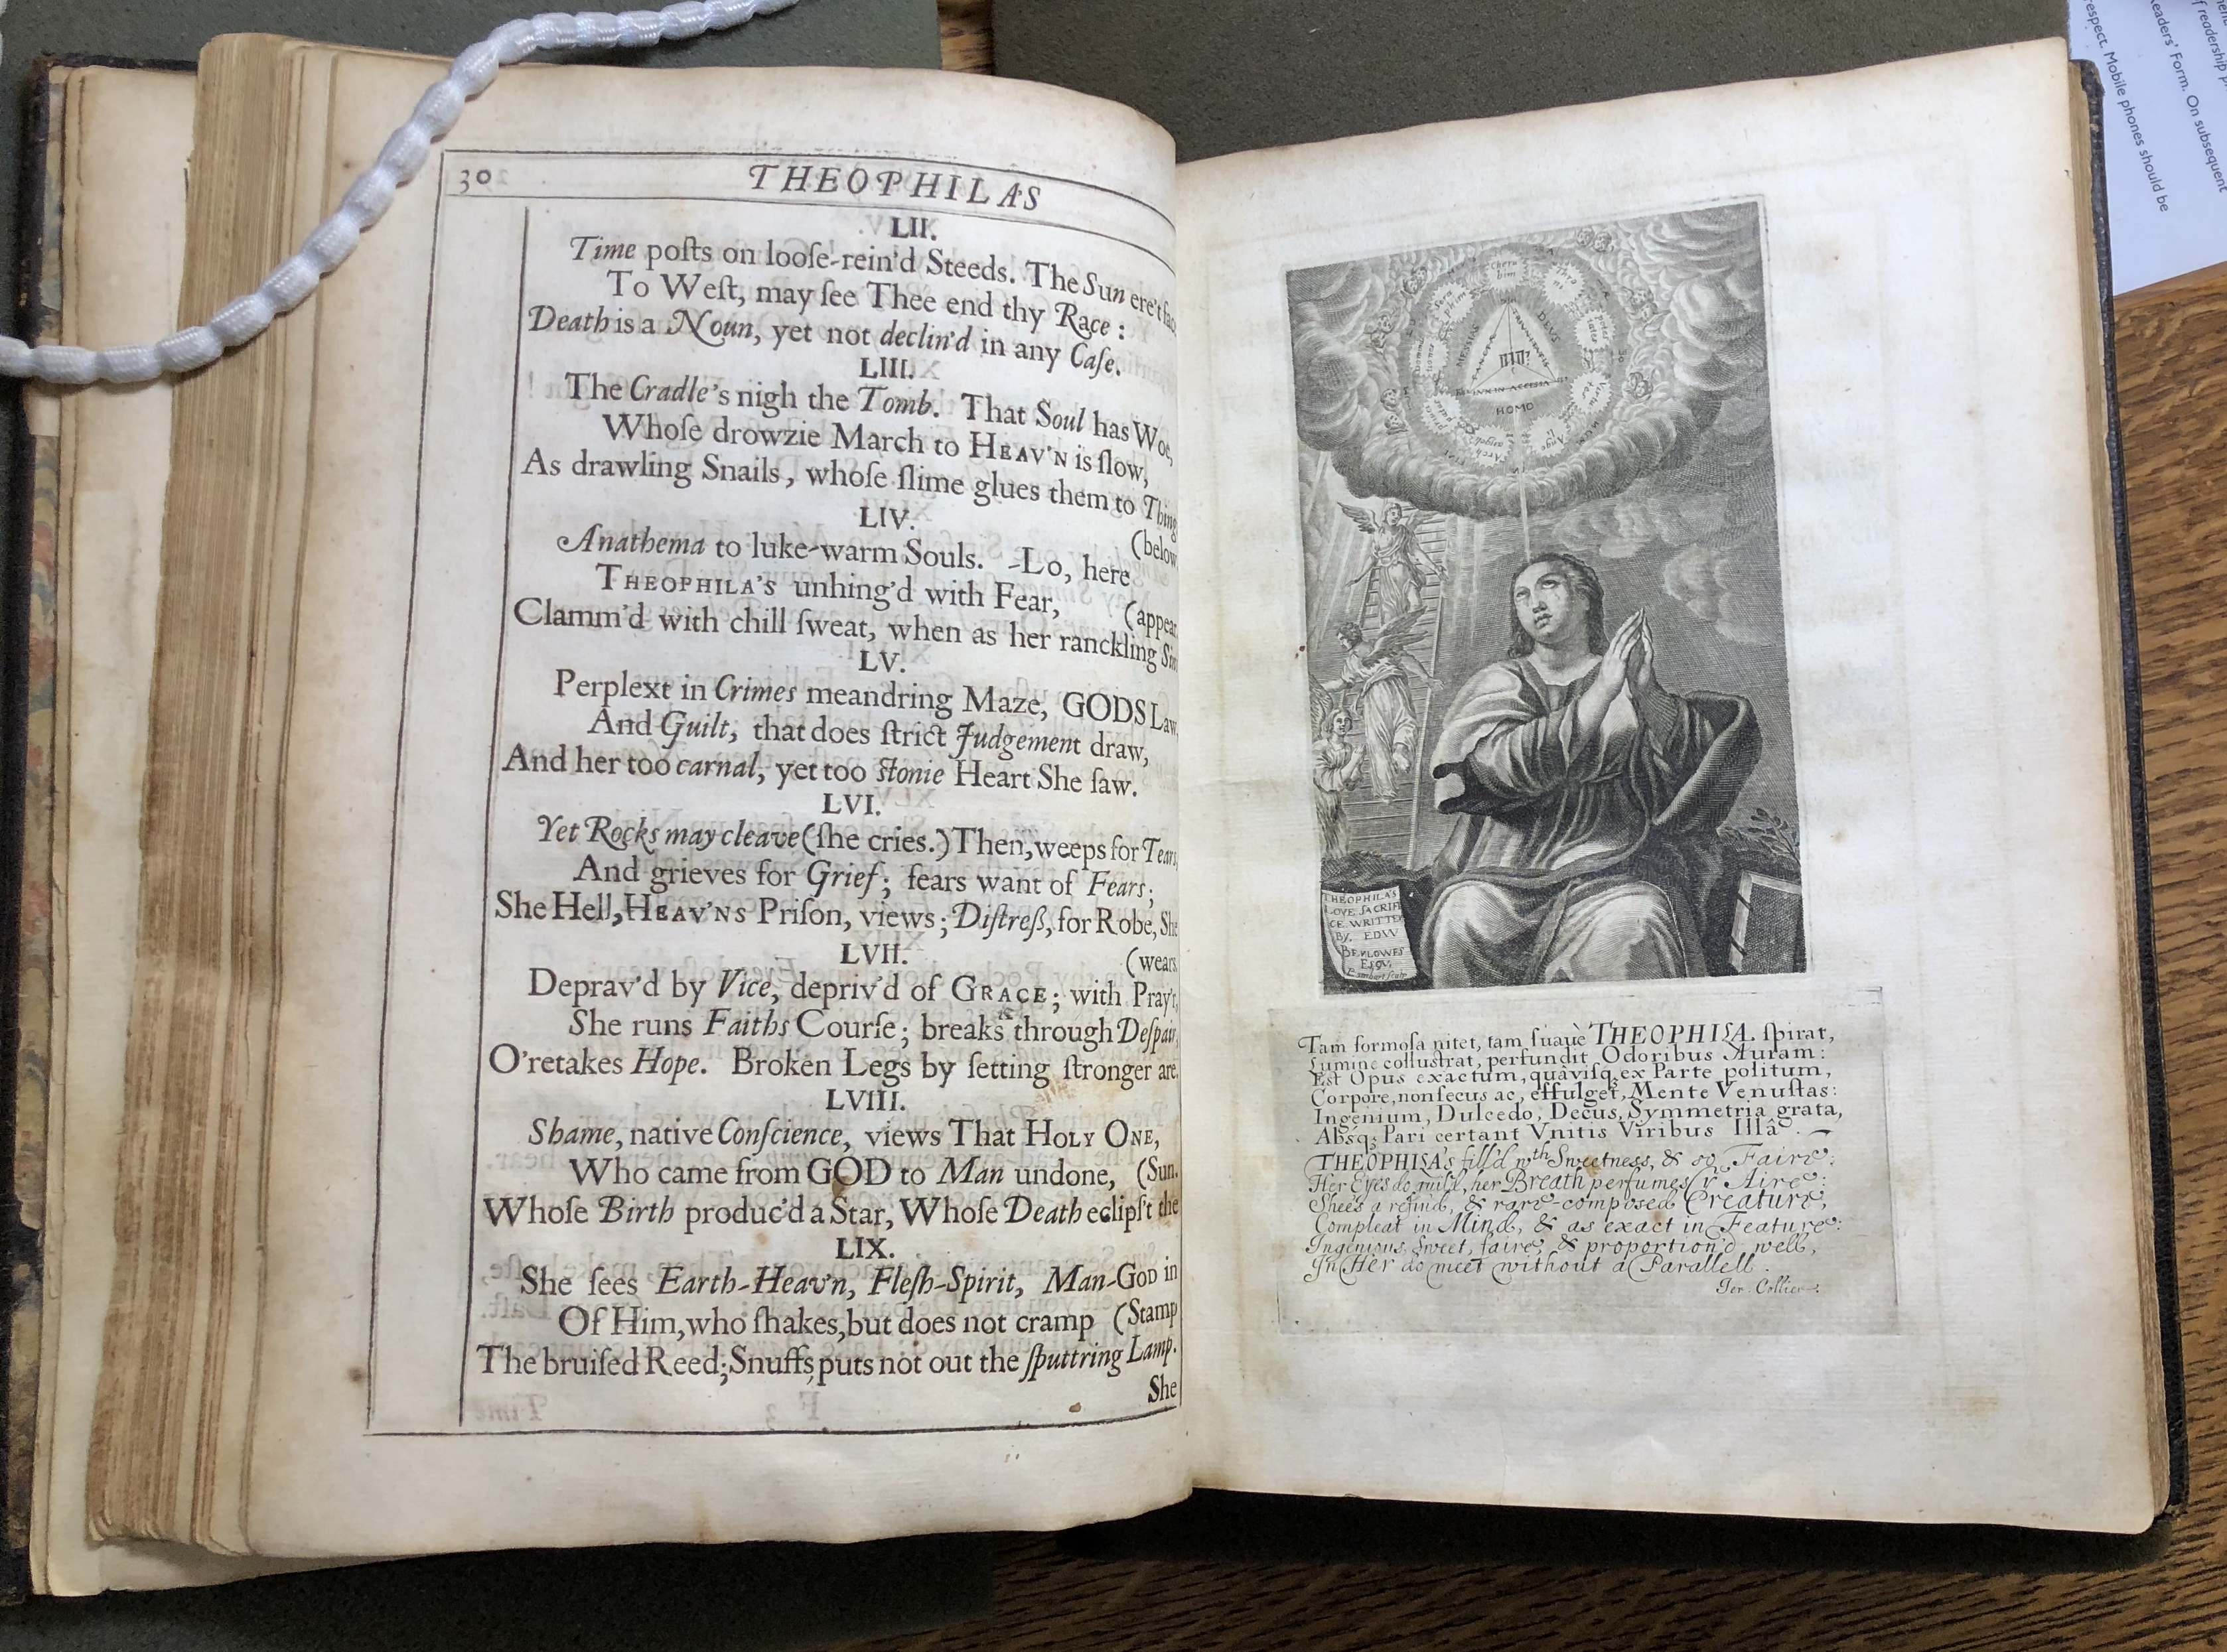 30
THEOPHILAS
LII.
Time poſts on looſe-rein'd Steeds. The Sun ere't
To Weſt, may ſee Thee end thy Race :
Death is a Noun, yet not declin'd in any Caſe.
LIII.
The Cradle's nigh the Tomb. That Soul has Woe,
Whoſe drowzie March to HEAV'N is ſlow,
As drawling Snails, whoſe ſlime glues them to Thing
(below
LIV.
Anathema to luke-warm Souls. -Lo, here
THEOPHILA'S unhing'd with Fear,
(appear
Clamm'd with chill ſweat, when as her ranckling Sin
LV.
Perplext in Crimes meandring Maze, GODS Law
And Guilt, that does ſtrict Judgement draw,
And her too carnal, yet too ſtonie Heart She ſaw.
LVI.
Yet Rocks may cleave (ſhe cries.) Then, weeps for Tears
And grieves for Grief; fears want of Fears;
She Hell, HEAV'NS Priſon, views; Diſtreſs, for Robe, She
(wears
LVII.
Deprav'd by Vice, depriv'd of GRACE; with Pray'r,
She runs Faiths Courſe; breaks through Deſpair,
O'retakes Hope. Broken Legs by ſetting ſtronger are.
LVIII.
Shame, native Conſcience, views That HOLY ONE,
Who came from GOD to Man undone, (Sun.
Whoſe Birth produc'd a Star, Whoſe Death eclipſ't the
LIX.
She ſees Earth-Heav'n, Fleſh-Spirit, Man-GOD in
Of Him, who ſhakes, but does not cramp (Stamp
The bruiſed Reed; Snuffs, puts not out the ſputtring Lamp.
She
Cheru
bim
Thro
ni
Sera
phim
MESSIAS
DEUS
HOMO
Ange
li
THEOPHILA'S
LOVE SACRIFI
CE WRITTE
BY EDW
BENLOWES
ESQV.
Tam formoſa nitet, tam ſuauè THEOPHILA ſpirat,
Lumine colluſtrat, perfundit Odoribus Auram:
Est Opus exactum, quâviſq; ex Parte politum,
Corpore, non ſecus ac, effulget, Mente Venuſtas:
Ingenium, Dulcedo, Decus, Symmetria grata,
Abſq; Pari certant Vnitis Viribus Illâ.
THEOPHILA's fill'd wth Sweetness, & so Faire:
Her Eyes do guild, her Breath perfumes yͤ Aire:
Shee's a refin'd, & rare-composed Creature,
Compleat in Mind, & as exact in Feature:
Ingenious, sweet, faire, & proportion'd well,
In Her do meet without a Parallell.
Jer. Collier.
respect. Mobile phones should be
Readers' Form. On subsequent
of readership